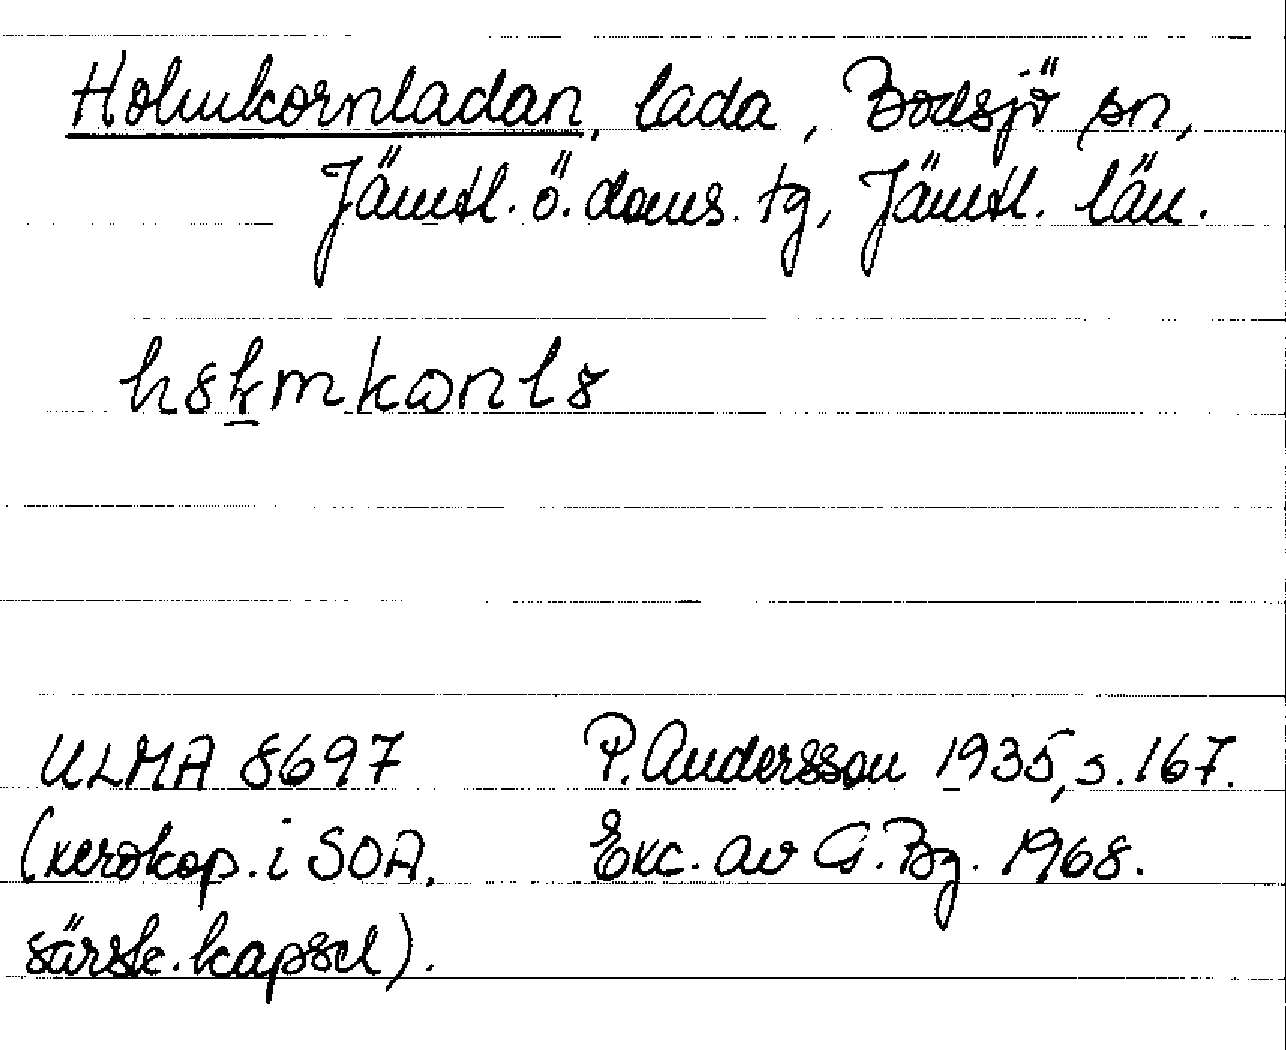 Holmkornladan, lada, Bodsjö sn,
Jämtl. ö. doms. tg, Jämtl. län.
ULMA 8697 P. Andersson 1935, s. 167.
(xerokop. i SOA, Exc. av G. Bg. 1968.
särsk. kapsel).